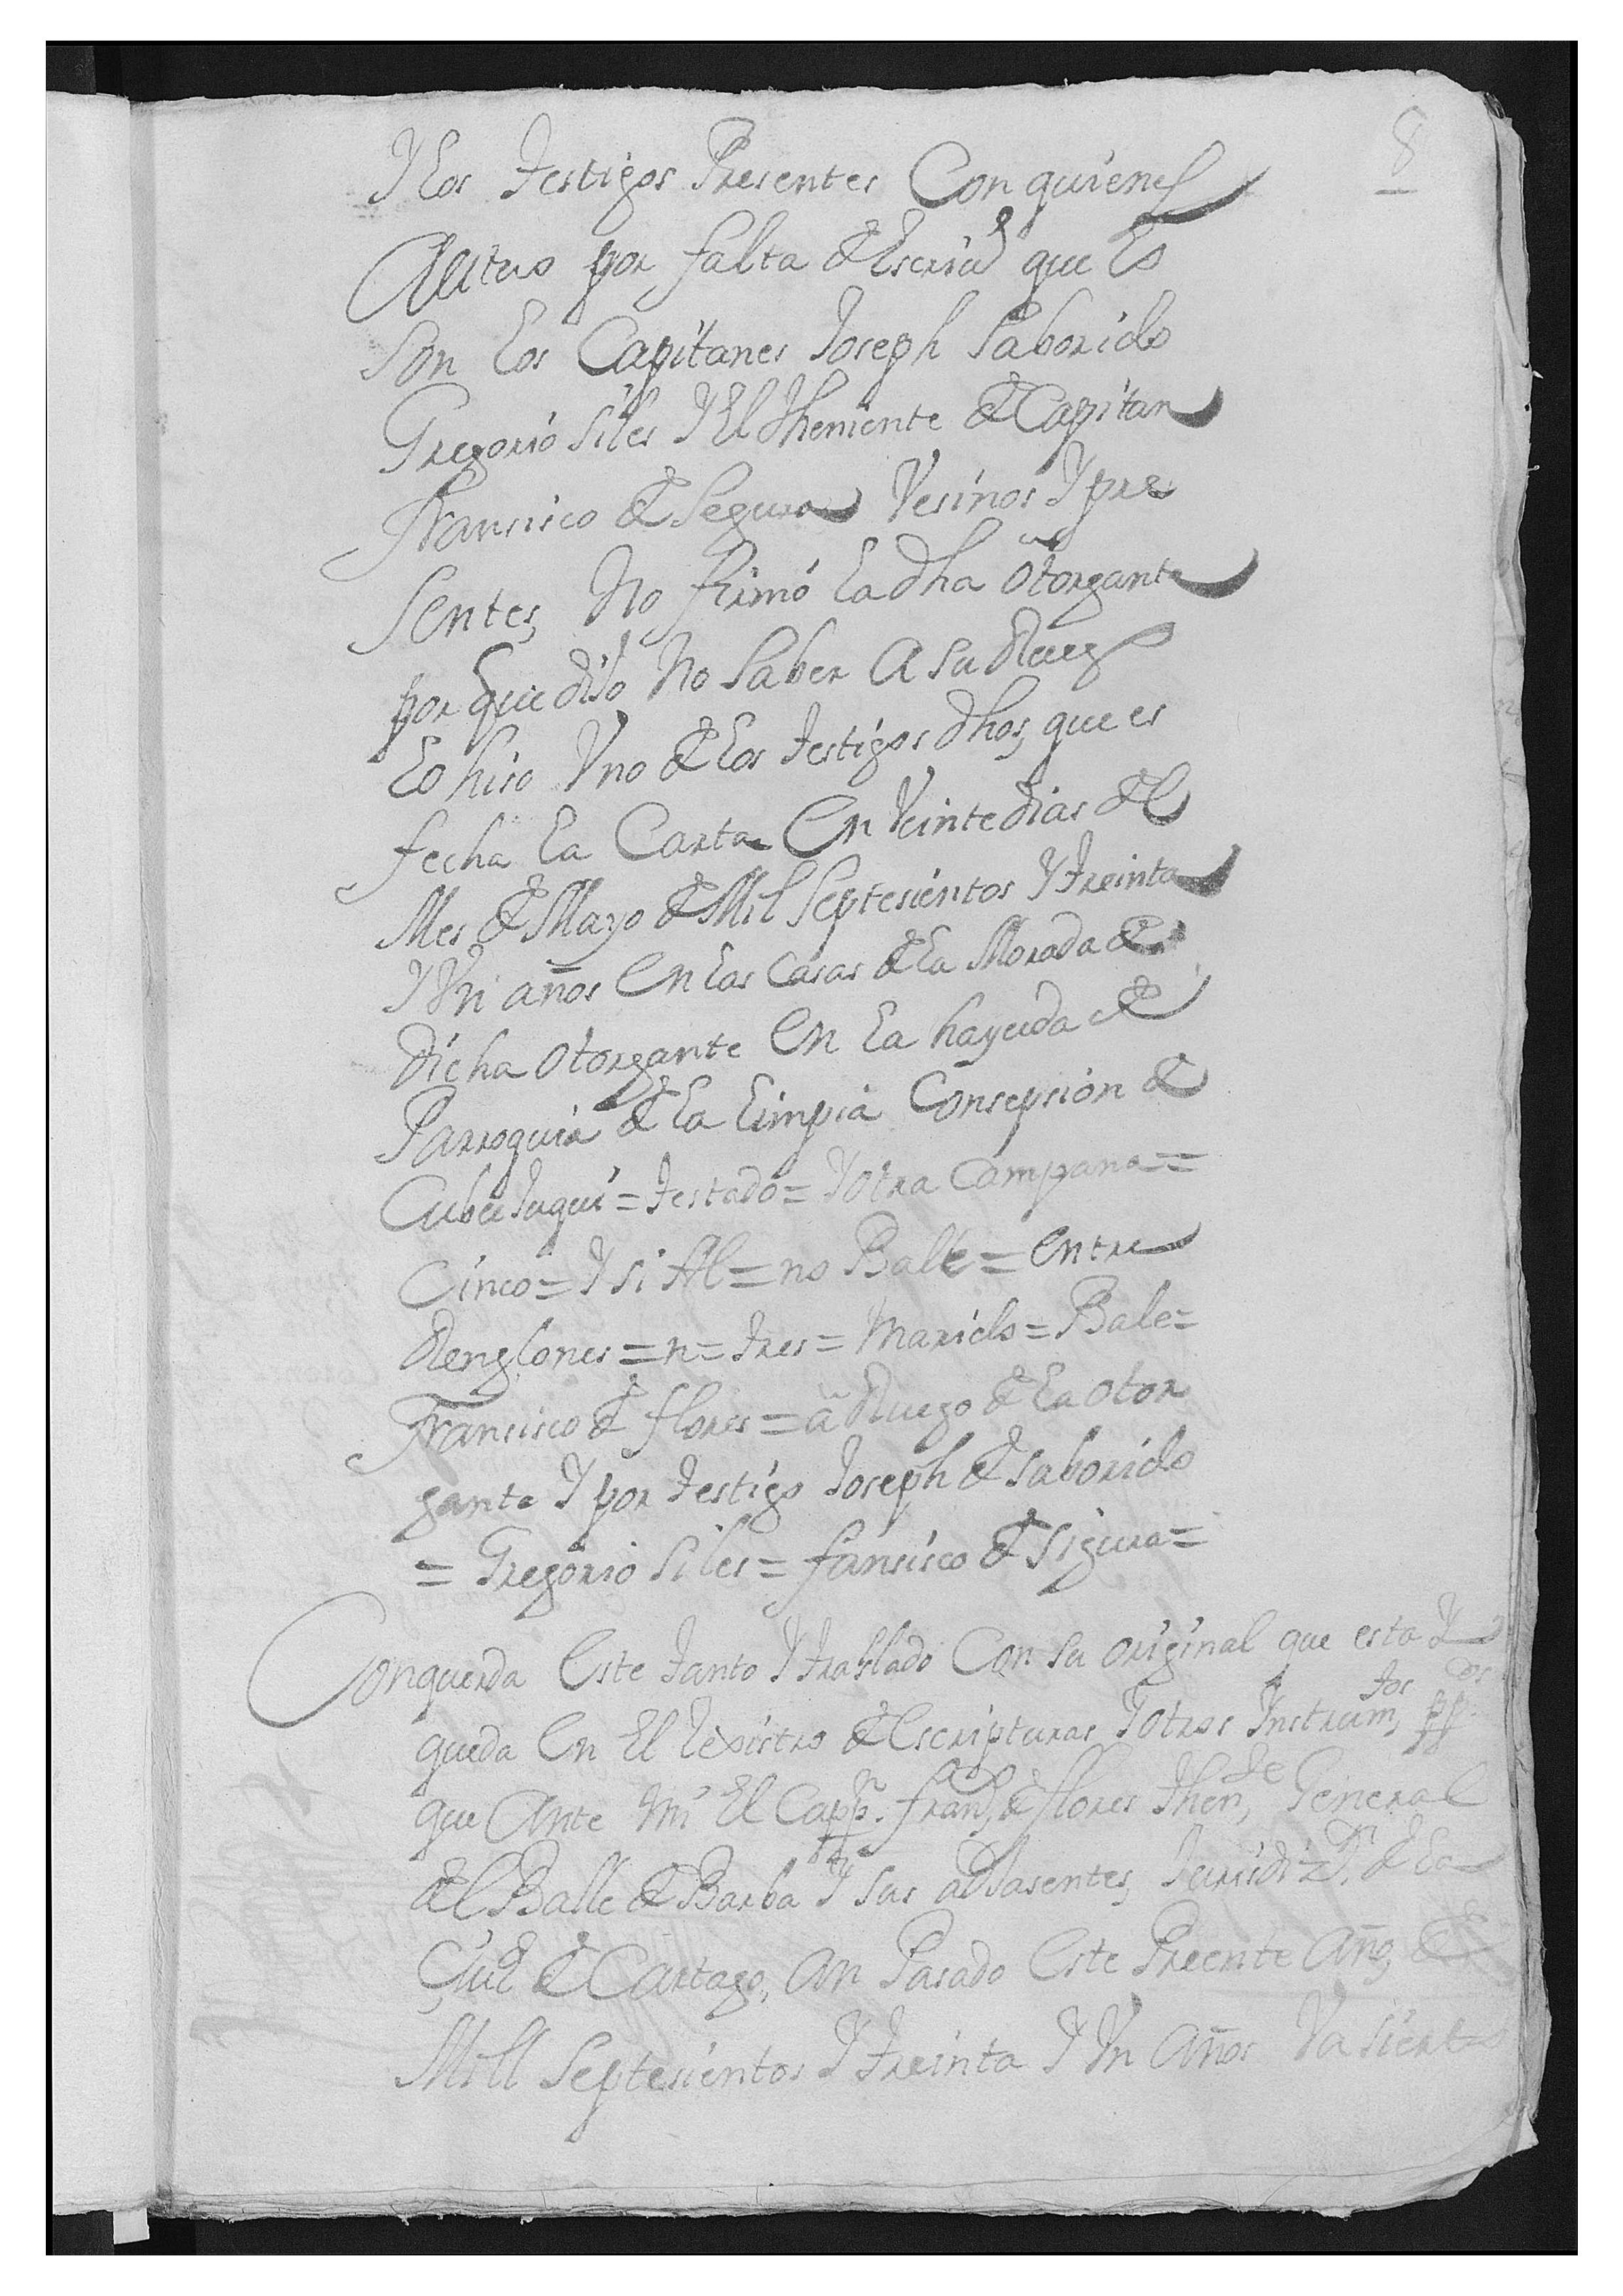 8
Y los testigos Presentes Con quienes
Actuo por falta de Escriv.º que lo
son los Capitanes Joseph Saborido
Gregorio Siles Y El Theniente de Capitan
Fransisco de Segura Vesinos Y pre
sentes, No firmó la dha otorgante
por que dijo No Saber A Su Ruego
lo hiso Vno de los testigos dhos, que es
fecha la Carta En Veinte dias del
Mes de Mayo de Mil Septesientos Y treinta
Y Vn años En las Casas de la Morada de
dicha otorgante En la hayuda de
Parroquia de la limpia Consepsion de
Cubujuqui = testado = Y otra Campana =
Cinco = Y si Al = no Balle = Entre
Renglones = n = tres = Marido = Bale =
Fransisco de flores = a Ruego de la otor
gante Y por testigo Joseph de Saborido
= Gregorio Siles = fansisco de Sigura =
Conquerda Este tanto Y traslado Con Su original que esta Y
queda En El Rexistro de Escripturas Y otros Ynstrum,tos pp.cos
que Ante Mi El Capp.n fran,co de flores Then,te General
del Balle de Barba Y sus adJasentes, Jurisdiz.n de la
Çiud de Cartago, an Pasado Este Preente Año, de
Mill Septesientos Y treinta Y Vn Años Va Sierto